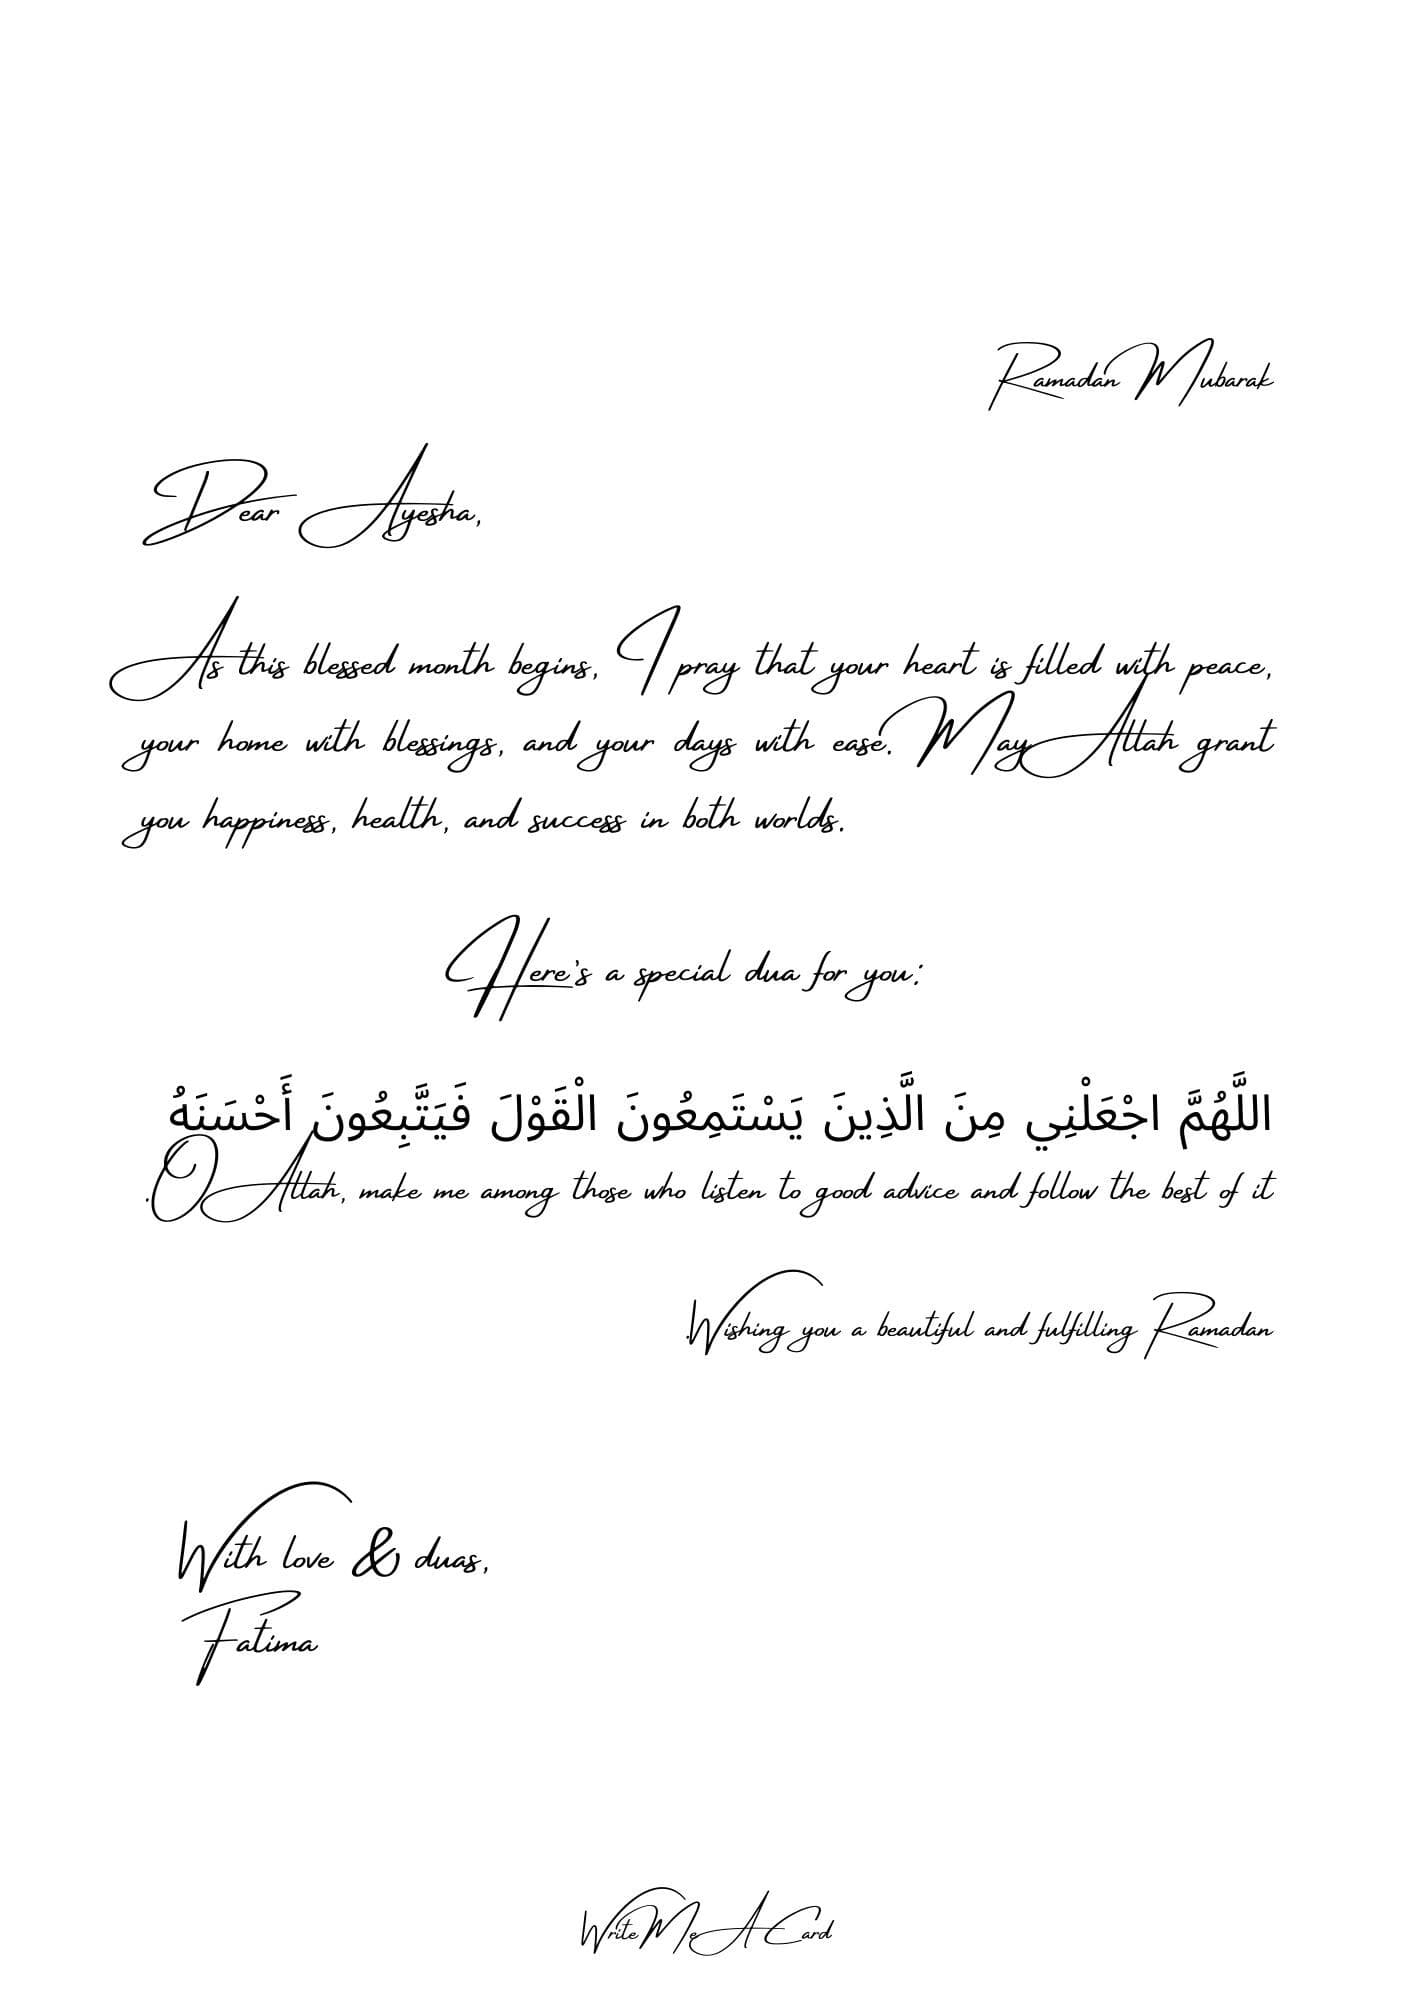 Ramadan Mubarak
Dear Ayesha,
As this blessed month begins, I pray that your heart is filled with peace,
your home with blessings, and your days with ease. May Allah grant
you happiness, health, and success in both worlds.
Here's a special dua for you:
اللَّهُمَّ اجْعَلْنِي مِنَ الَّذِينَ يَسْتَمِعُونَ الْقَوْلَ فَيَتَّبِعُونَ أَحْسَنَهُ
.O Allah, make me among those who listen to good advice and follow the best of it
.Wishing you a beautiful and fulfilling Ramadan
With love & duas,
Fatima
Write Me A Card